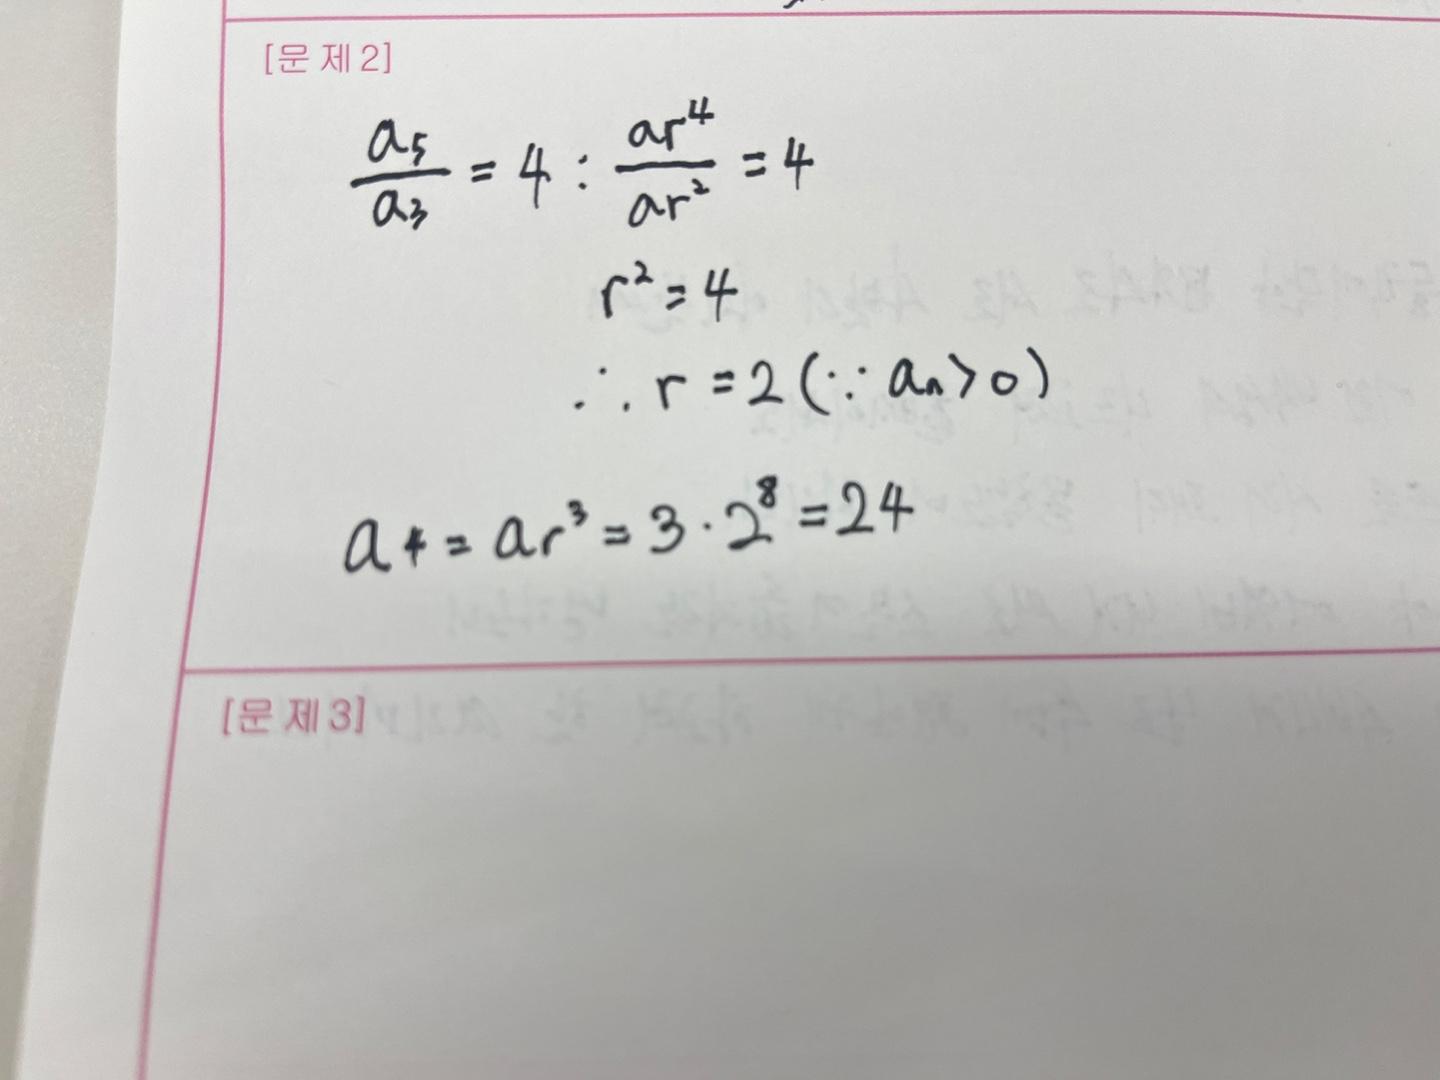 [문 제 2]
a₅/a₃ = 4 : ar⁴/ar² = 4
r² = 4
∴ r = 2 (∵ aₙ > 0)
a₄ = ar³ = 3 · 2⁸ = 24
[문 제 3]